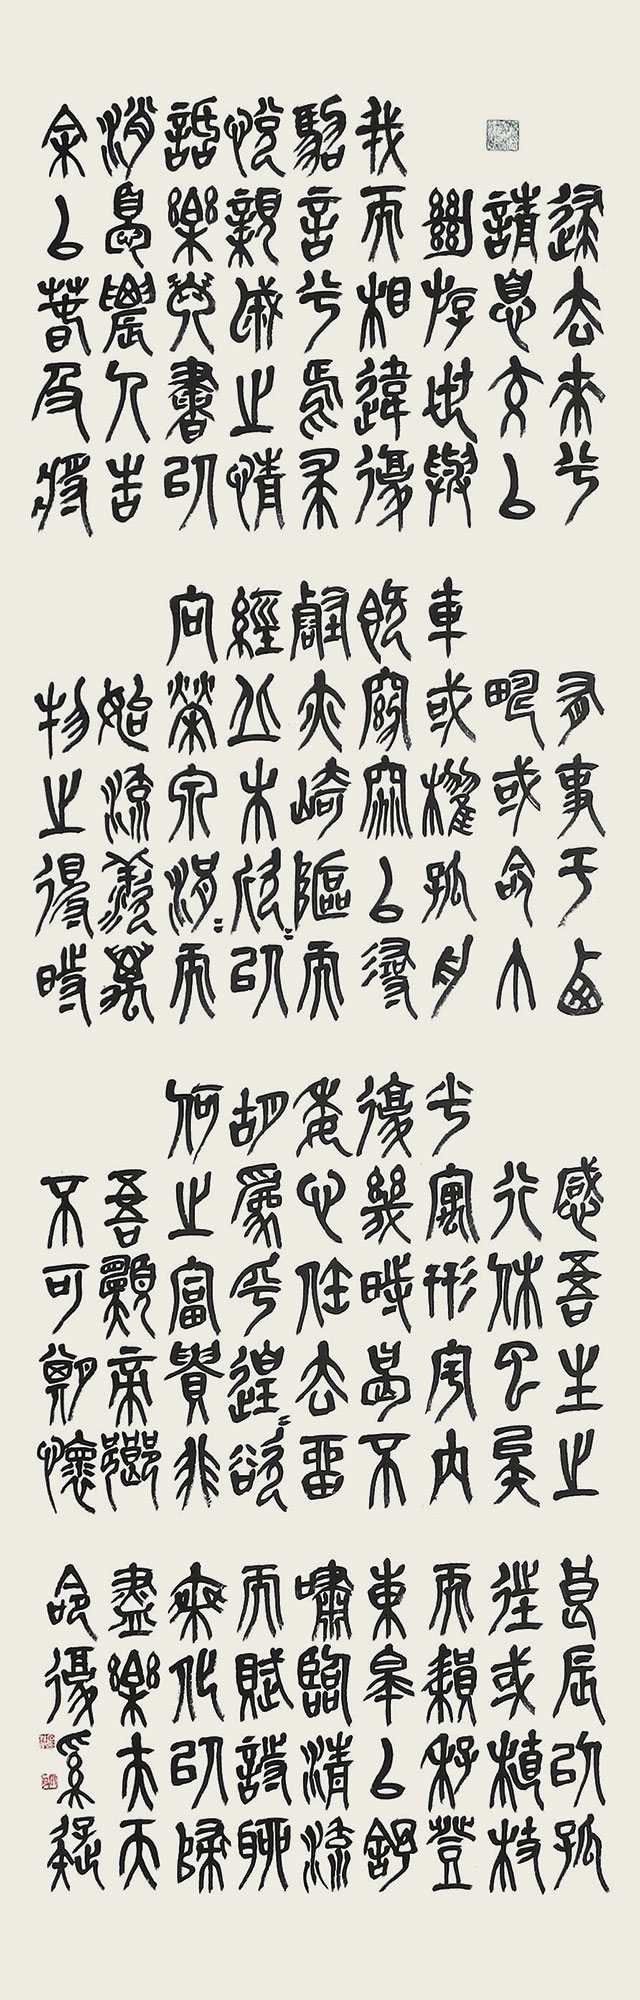 歸去來兮
請息交以
絕游世與
我而相違復
駕言兮焉求
悅親戚之情
話樂琴書以
消憂農人告
余以春及將
有事于西
疇或命巾
車或櫂孤舟
既窈窕以尋
壑亦崎嶇而
經丘木欣〻以
向榮泉涓〻而
始流羨萬
物之得時
感吾生之
行休已矣
乎寓形宇內
復幾時曷不
委心任去留
胡為乎遑〻欲
何之富貴非
吾願帝鄉
不可期懷
良辰以孤
往或植杖
而耘耔登
東皋以舒
嘯臨清流
而賦詩聊
乘化以歸
盡樂夫天
命復奚疑